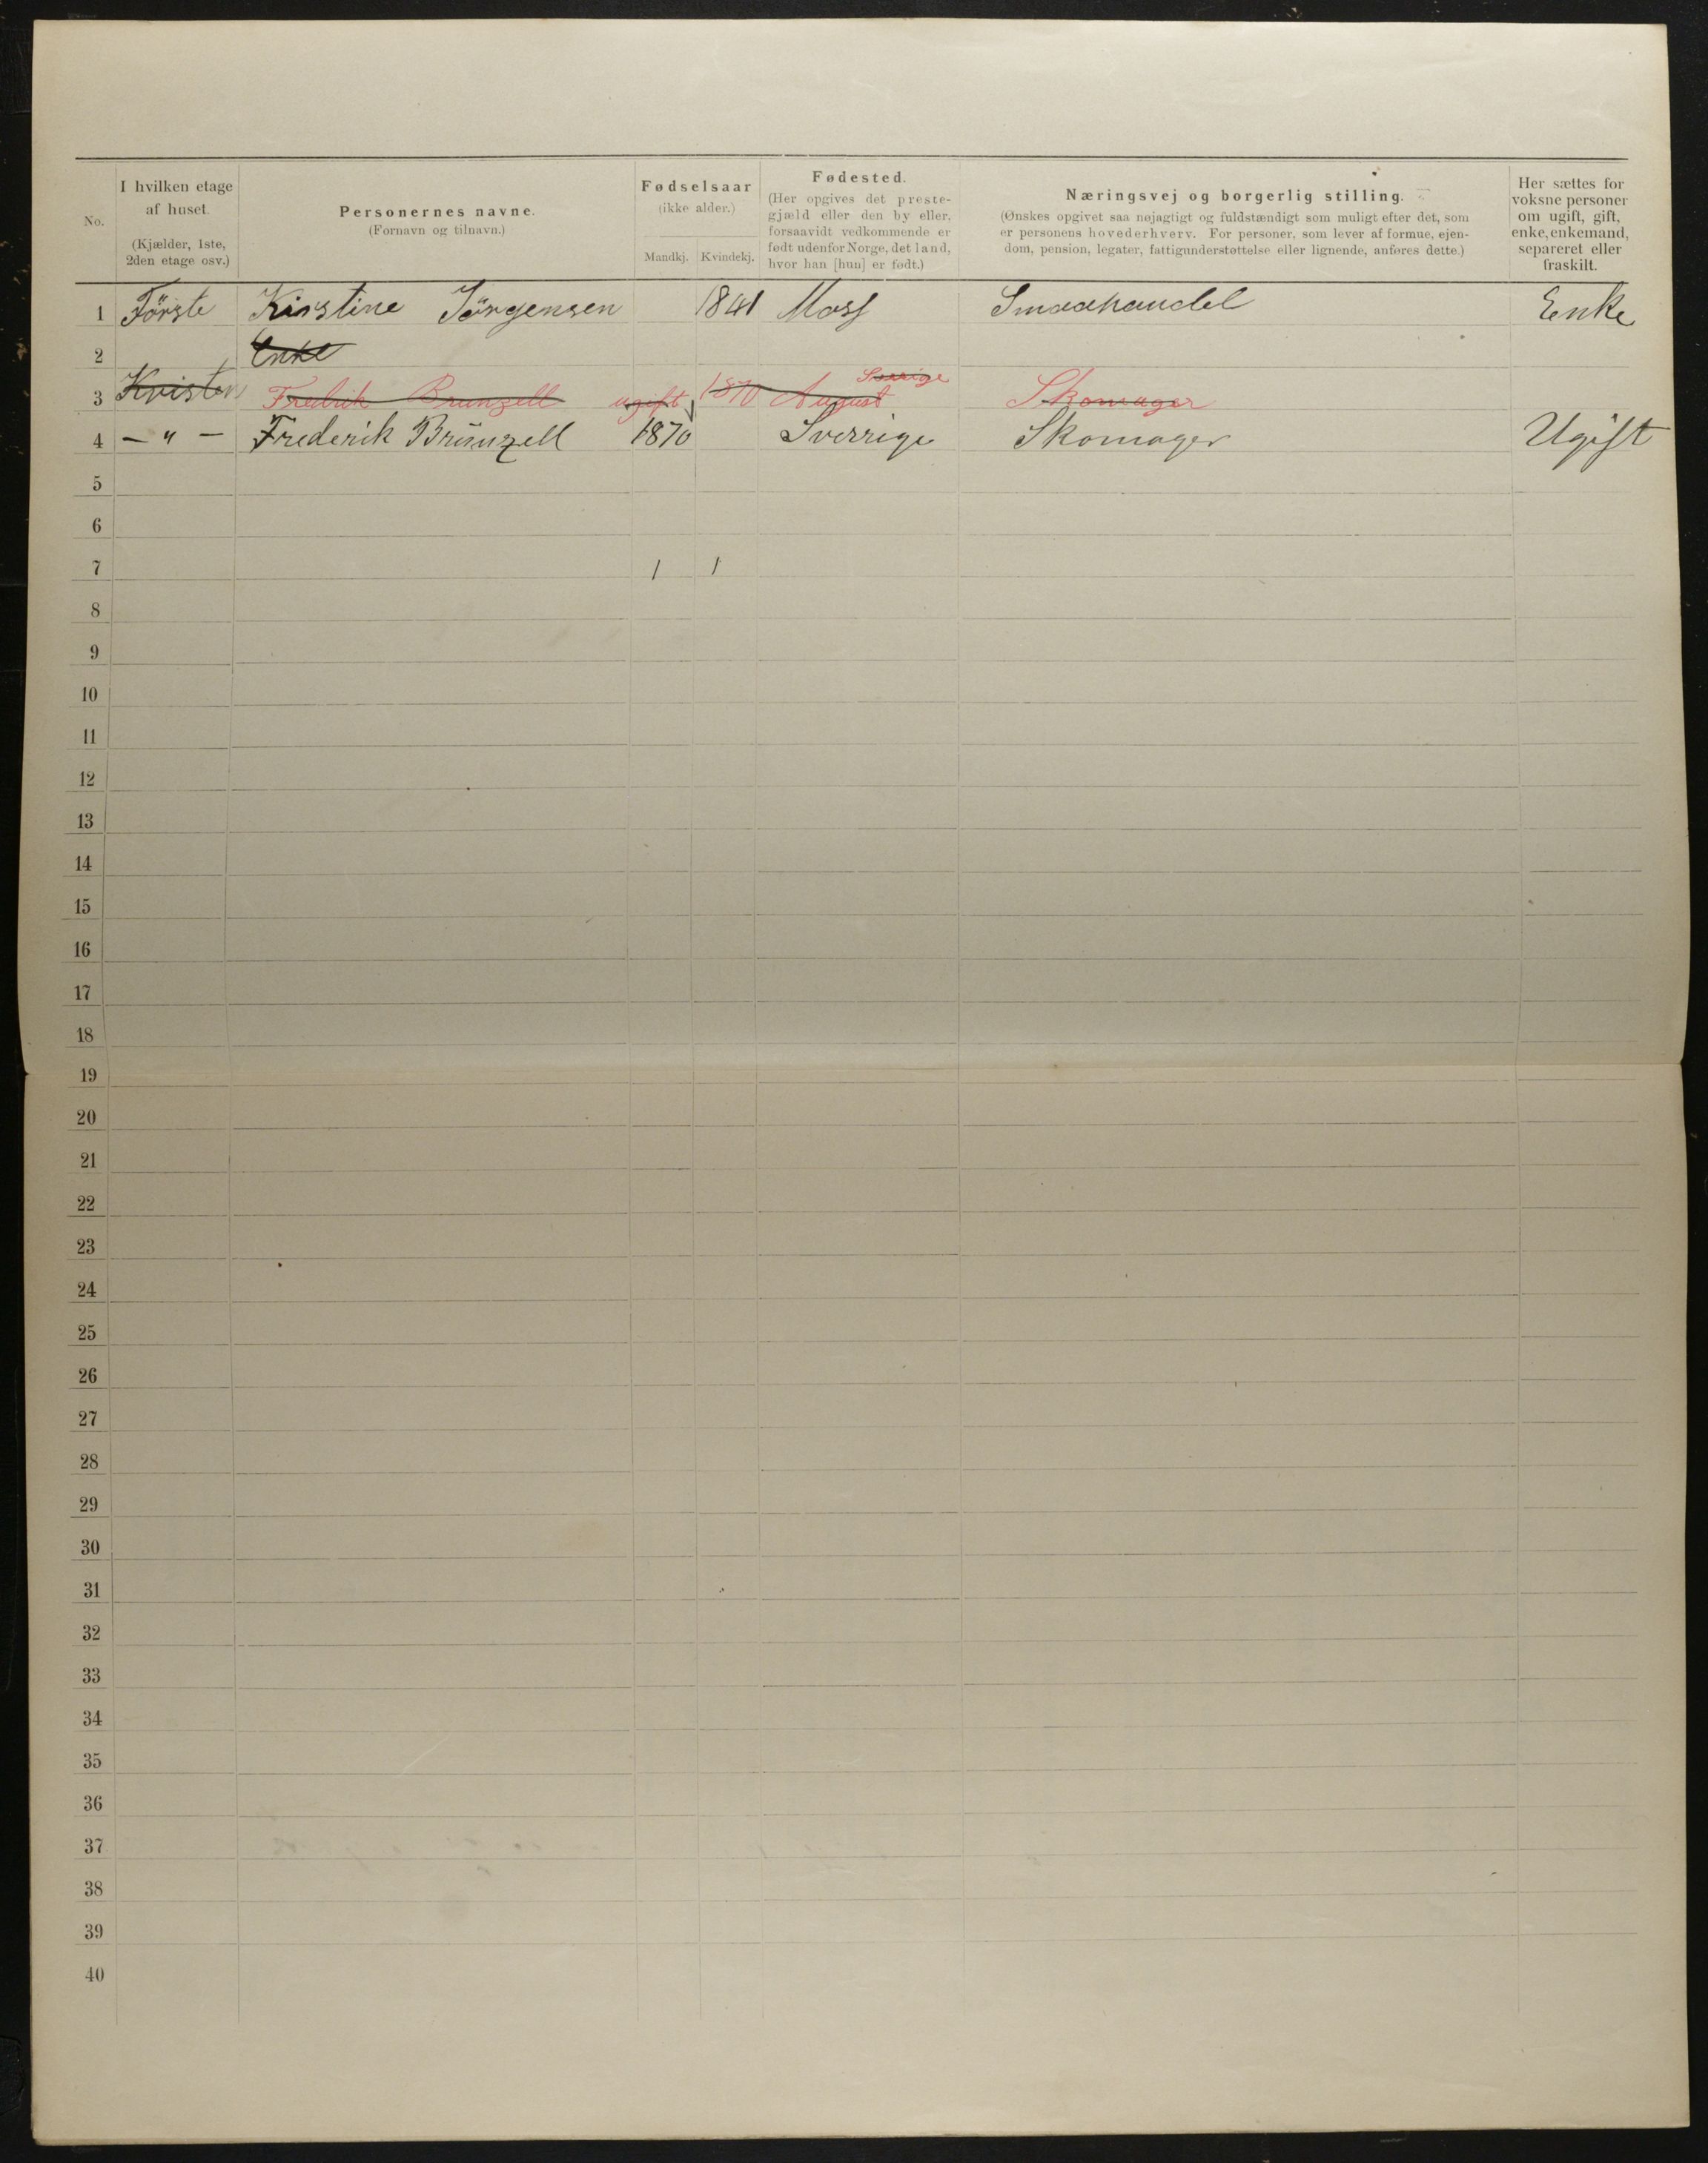 No.
I hvilken etage
af huset.
(Kjælder, 1ste,
2den etage osv.)
Personernes navne.
(Fornavn og tilnavn.)
Fødselsaar
(ikke alder.)
Mandkj. Kvindekj.
Fødested.
(Her opgives det preste-
gjæld eller den by eller,
forsaavidt vedkommende er
født udenfor Norge, det land,
hvor han [hun] er født.)
Næringsvej og borgerlig stilling.
(Ønskes opgivet saa nøjagtigt og fuldstændigt som muligt efter det, som
er personens hovederhverv. For personer, som lever af formue, ejen-
dom, pension, legater, fattigunderstøttelse eller lignende, anføres dette.)
Her sættes for
voksne personer
om ugift, gift,
enke, enkemand,
separeret eller
fraskilt.
1 Förste Kirstine Jörgensen 1841 Moss Smaahandel Enke
2 Enke
3 Kvisten Fredrik Brunzell ugift 1870 August Sverige Skomager
4 — " — Frederik Brünzell 1870 Sverrige Skomager Ugift
5
6
7 1 1
8
9
10
11
12
13
14
15
16
17
18
19
20
21
22
23
24
25
26
27
28
29
30
31
32
33
34
35
36
37
38
39
40